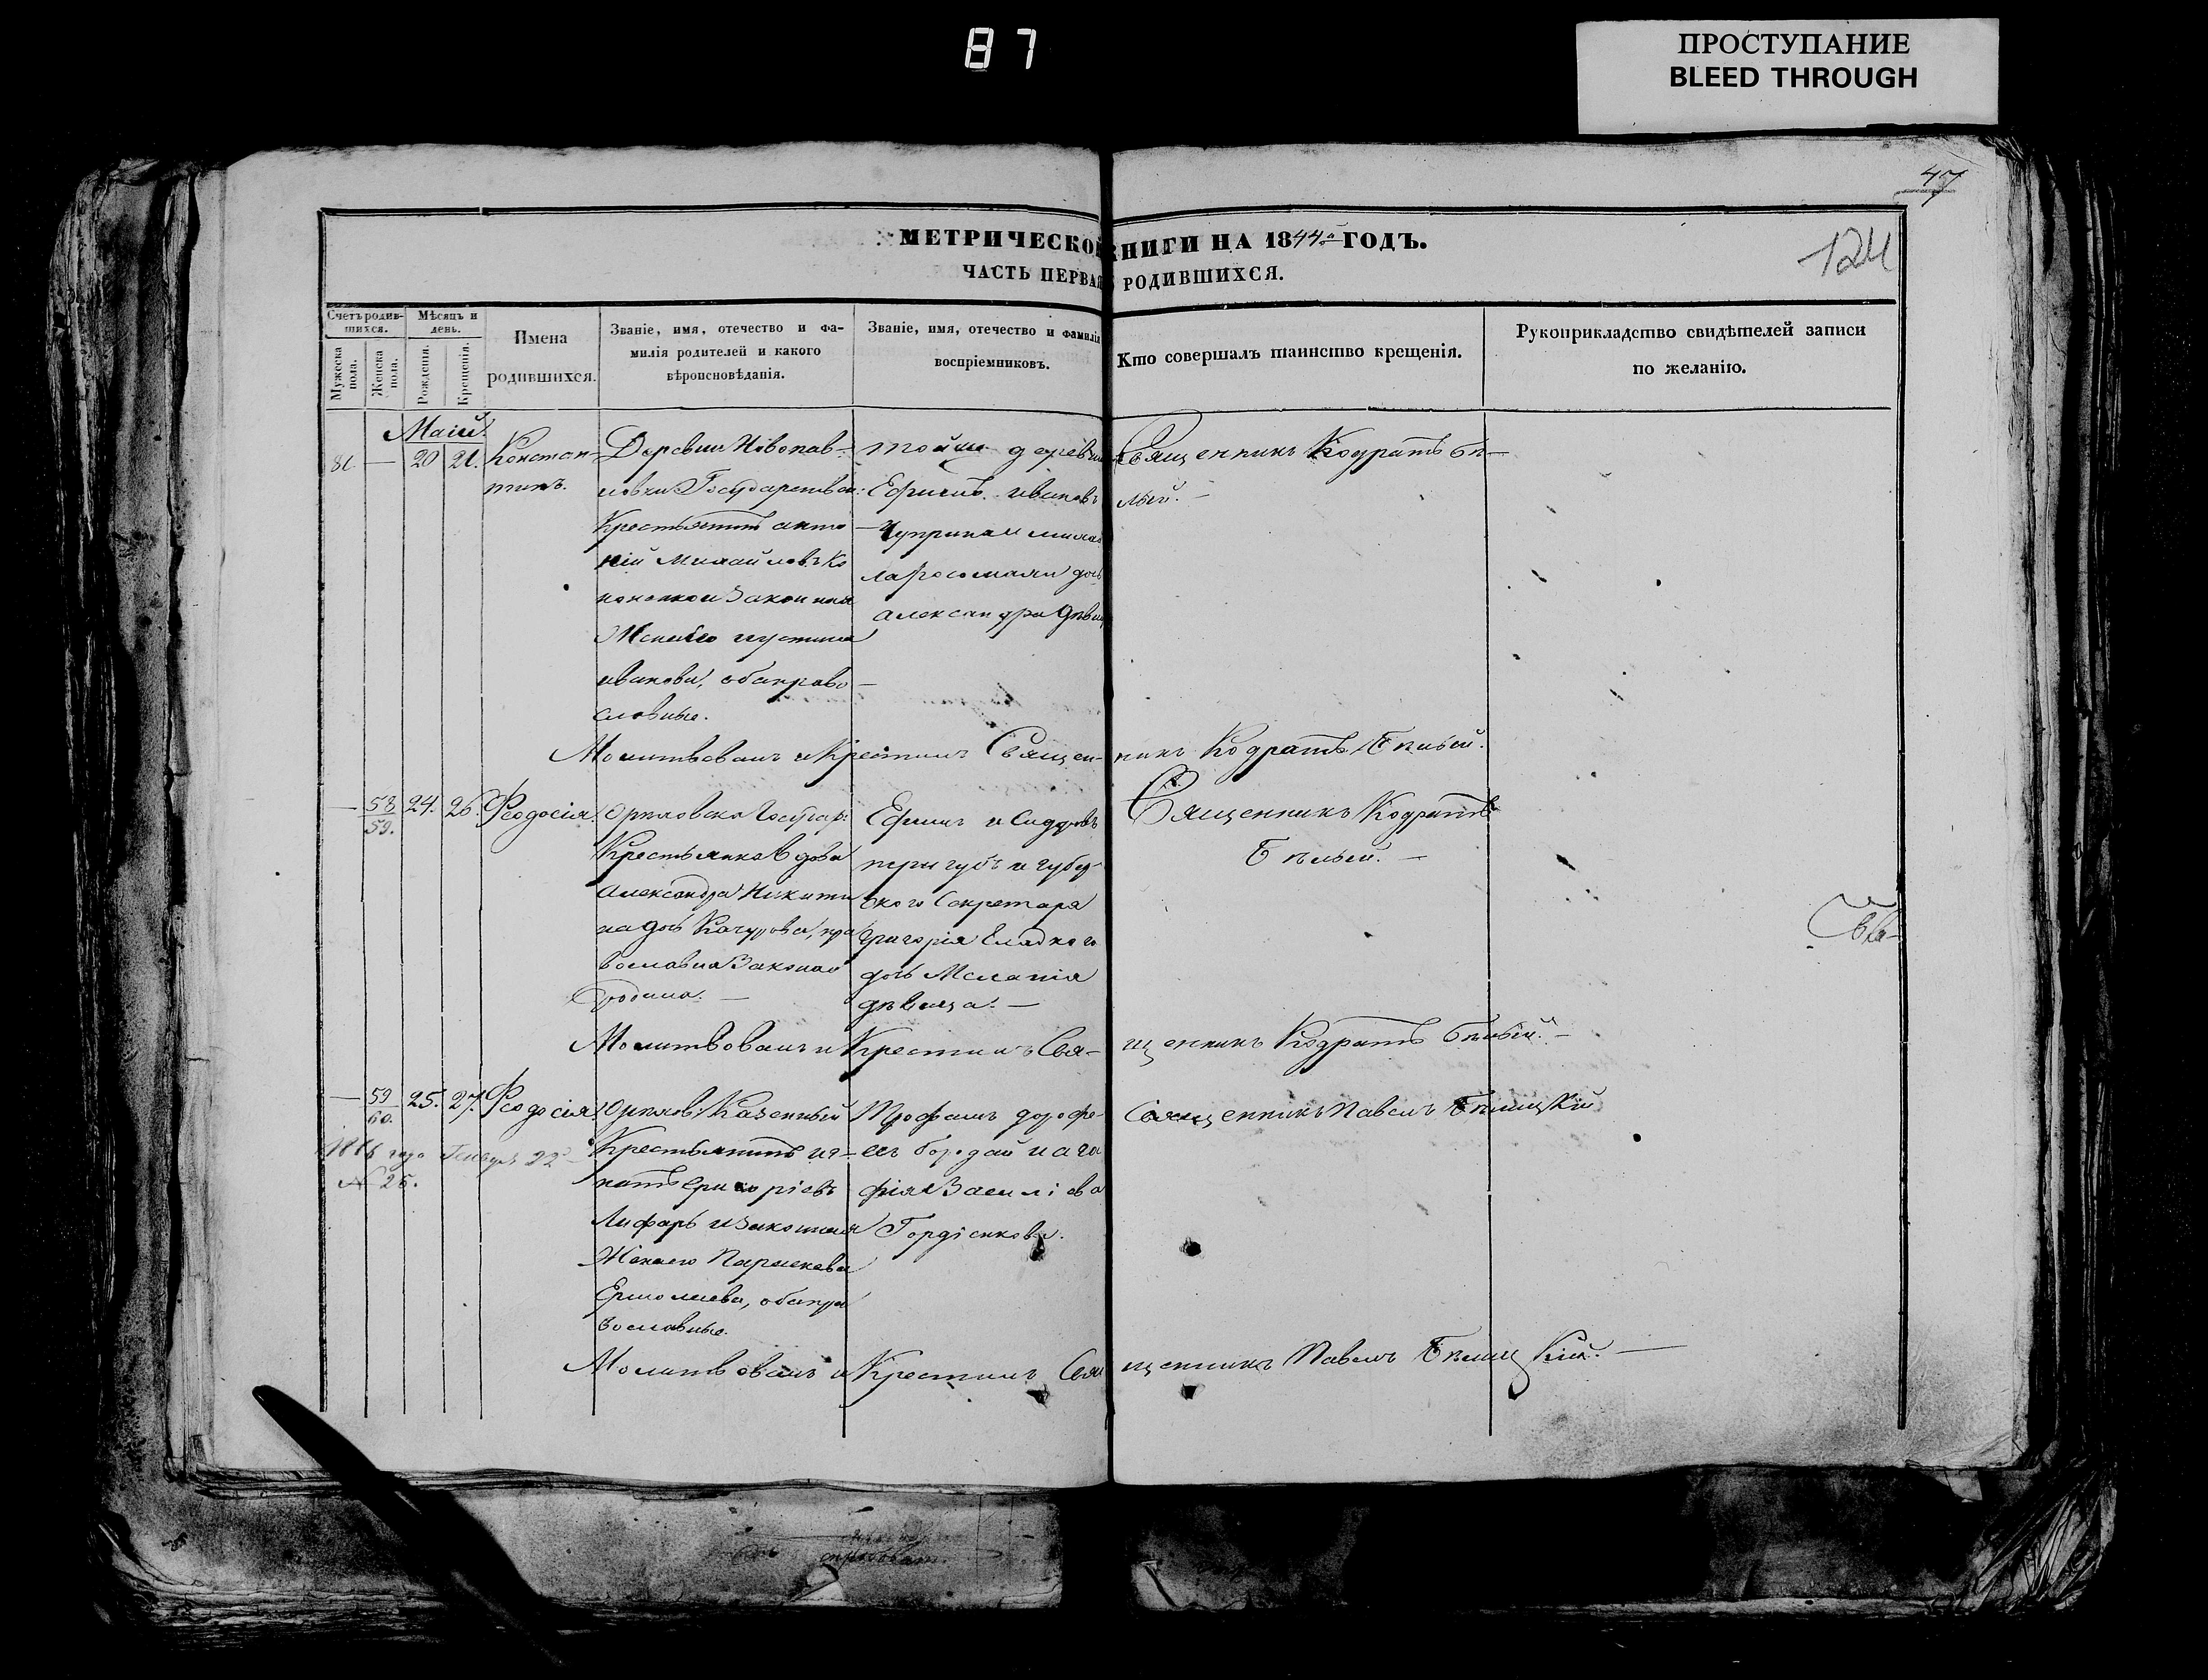 87
ПРОСТУПАНИЕ
BLEED THROUGH
47
124
МЕТРИЧЕСКОЙ КНИГИ НА 1844й ГОДЪ.
ЧАСТЬ ПЕРВАЯ РОДИВШИХСЯ.
Счетъ родив-шихся.
Мужеска пола.
Женска пола.
Мѣсяцъ и день.
Рожденія.
Крещенія.
Имена
родившихся.
Званіе, имя, отечество и фа-
милія родителей и какого
вѣроисповѣданія.
Званіе, имя, отечество и фамилія
воспріемниковъ.
Кто совершалъ таинство крещенія.
Рукоприкладство свидѣтелей записи
по желанію.
Маій.
81. — 20 21. Констан-
тинъ.
Деревни Новопав-
ловки Государствен:
Крестьянинъ анто
ній Михайловъ Ко
и Законная
Жена его иустина
иванова, обаправо
славные.
тойже деревни
Ефимъ ивановъ
Чуприна и
дочь
александра дѣвица
Священникъ Кодратъ бѣ-
лый. —
Молитвовалъ и Крестилъ Священ-никъ Кодратъ Бѣлый.
— 58 24. 26. Феодосія.
59.
Орѣховска Государ:
Крестьянка Вдова
Александра Никити
на дочь Качурова, пра
вославна Законно
родила. —
Ефимъ и Сидоровъ
и губер-
ского Секретаря
григорія Гладкого
дочь Меланія
дѣвица. —
Священникъ Кодратъ
Бѣлый. —
Свя-
Молитвовалъ и Крестилъ Свя-щенникъ Кодратъ бѣлый. —
— 59 25. 27. Феодосія
60.
года Генваря 22
№ 25.
Орѣхов: Казенный
Крестьянинъ иг-
натъ Григоріевъ
Лифарь и Законная
Жена его Параскева
Ермолаева, обапра
вославные.
Трофимъ дорофе-
евъ бородай и ага
фія Василіева
Гордіенкова.
Священникъ Павелъ Бѣлицкій
Молитвовалъ и Крестилъ Свя щенникъ Павелъ Бѣлицкій. —